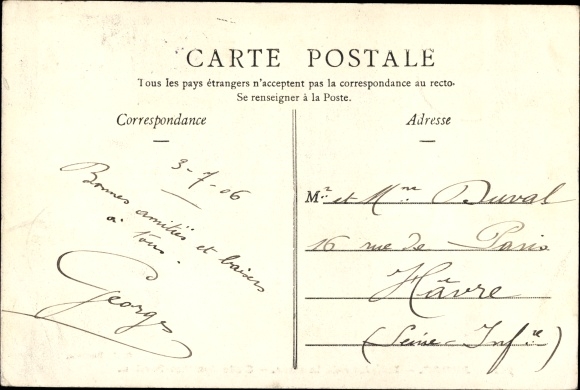 CARTE POSTALE
Tous les pays étrangers n'acceptent pas la correspondance au recto.
Se renseigner à la Poste.
Correspondance
3-7-06
Bonnes amitiés et baisers
à tous.
Georges
Adresse
Mr et Mme Duval
16 rue de Paris
Hâvre
(Seine-Infre)